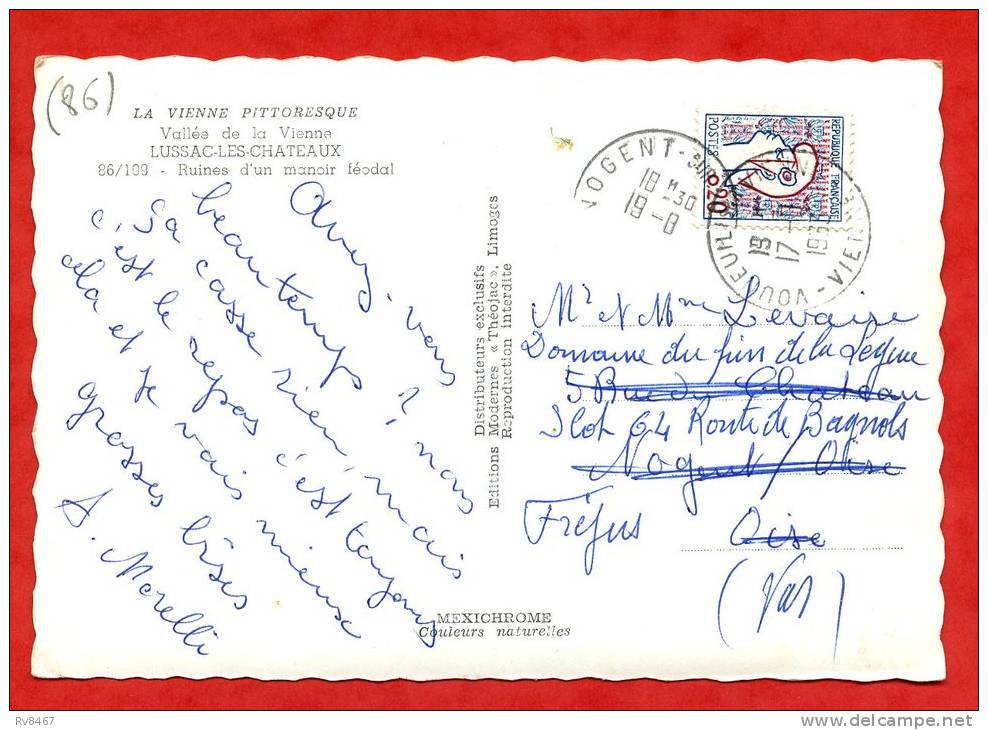 (86)
LA VIENNE PITTORESQUE
Vallée de la Vienne
LUSSAC-LES-CHATEAUX
86/109 - Ruines d'un manoir féodal
Avez vous
beau temps ? nous
ça casse rien, mais
c'est le repas c'est toujours
cela et je vais mieux
grosses bises
S. Morelli
Distributeurs exclusifs
Editions Modernes « Théojac », Limoges
Reproduction interdite
MEXICHROME
Couleurs naturelles
REPUBLIQUE FRANÇAISE
POSTES
0,20
NOGENT-SUR
18 H 30
19 - 8
VOUNEUIL
VIENNE
19 H
17 -
19
Mr et Mme Levaire
Domaine du pin de la Legue
5 Rue du Chateau
Ilot 64 Route de Bagnols
Nogent / Oise
Fréjus
Oise
(Var)
Rv8467
www.delcampe.net